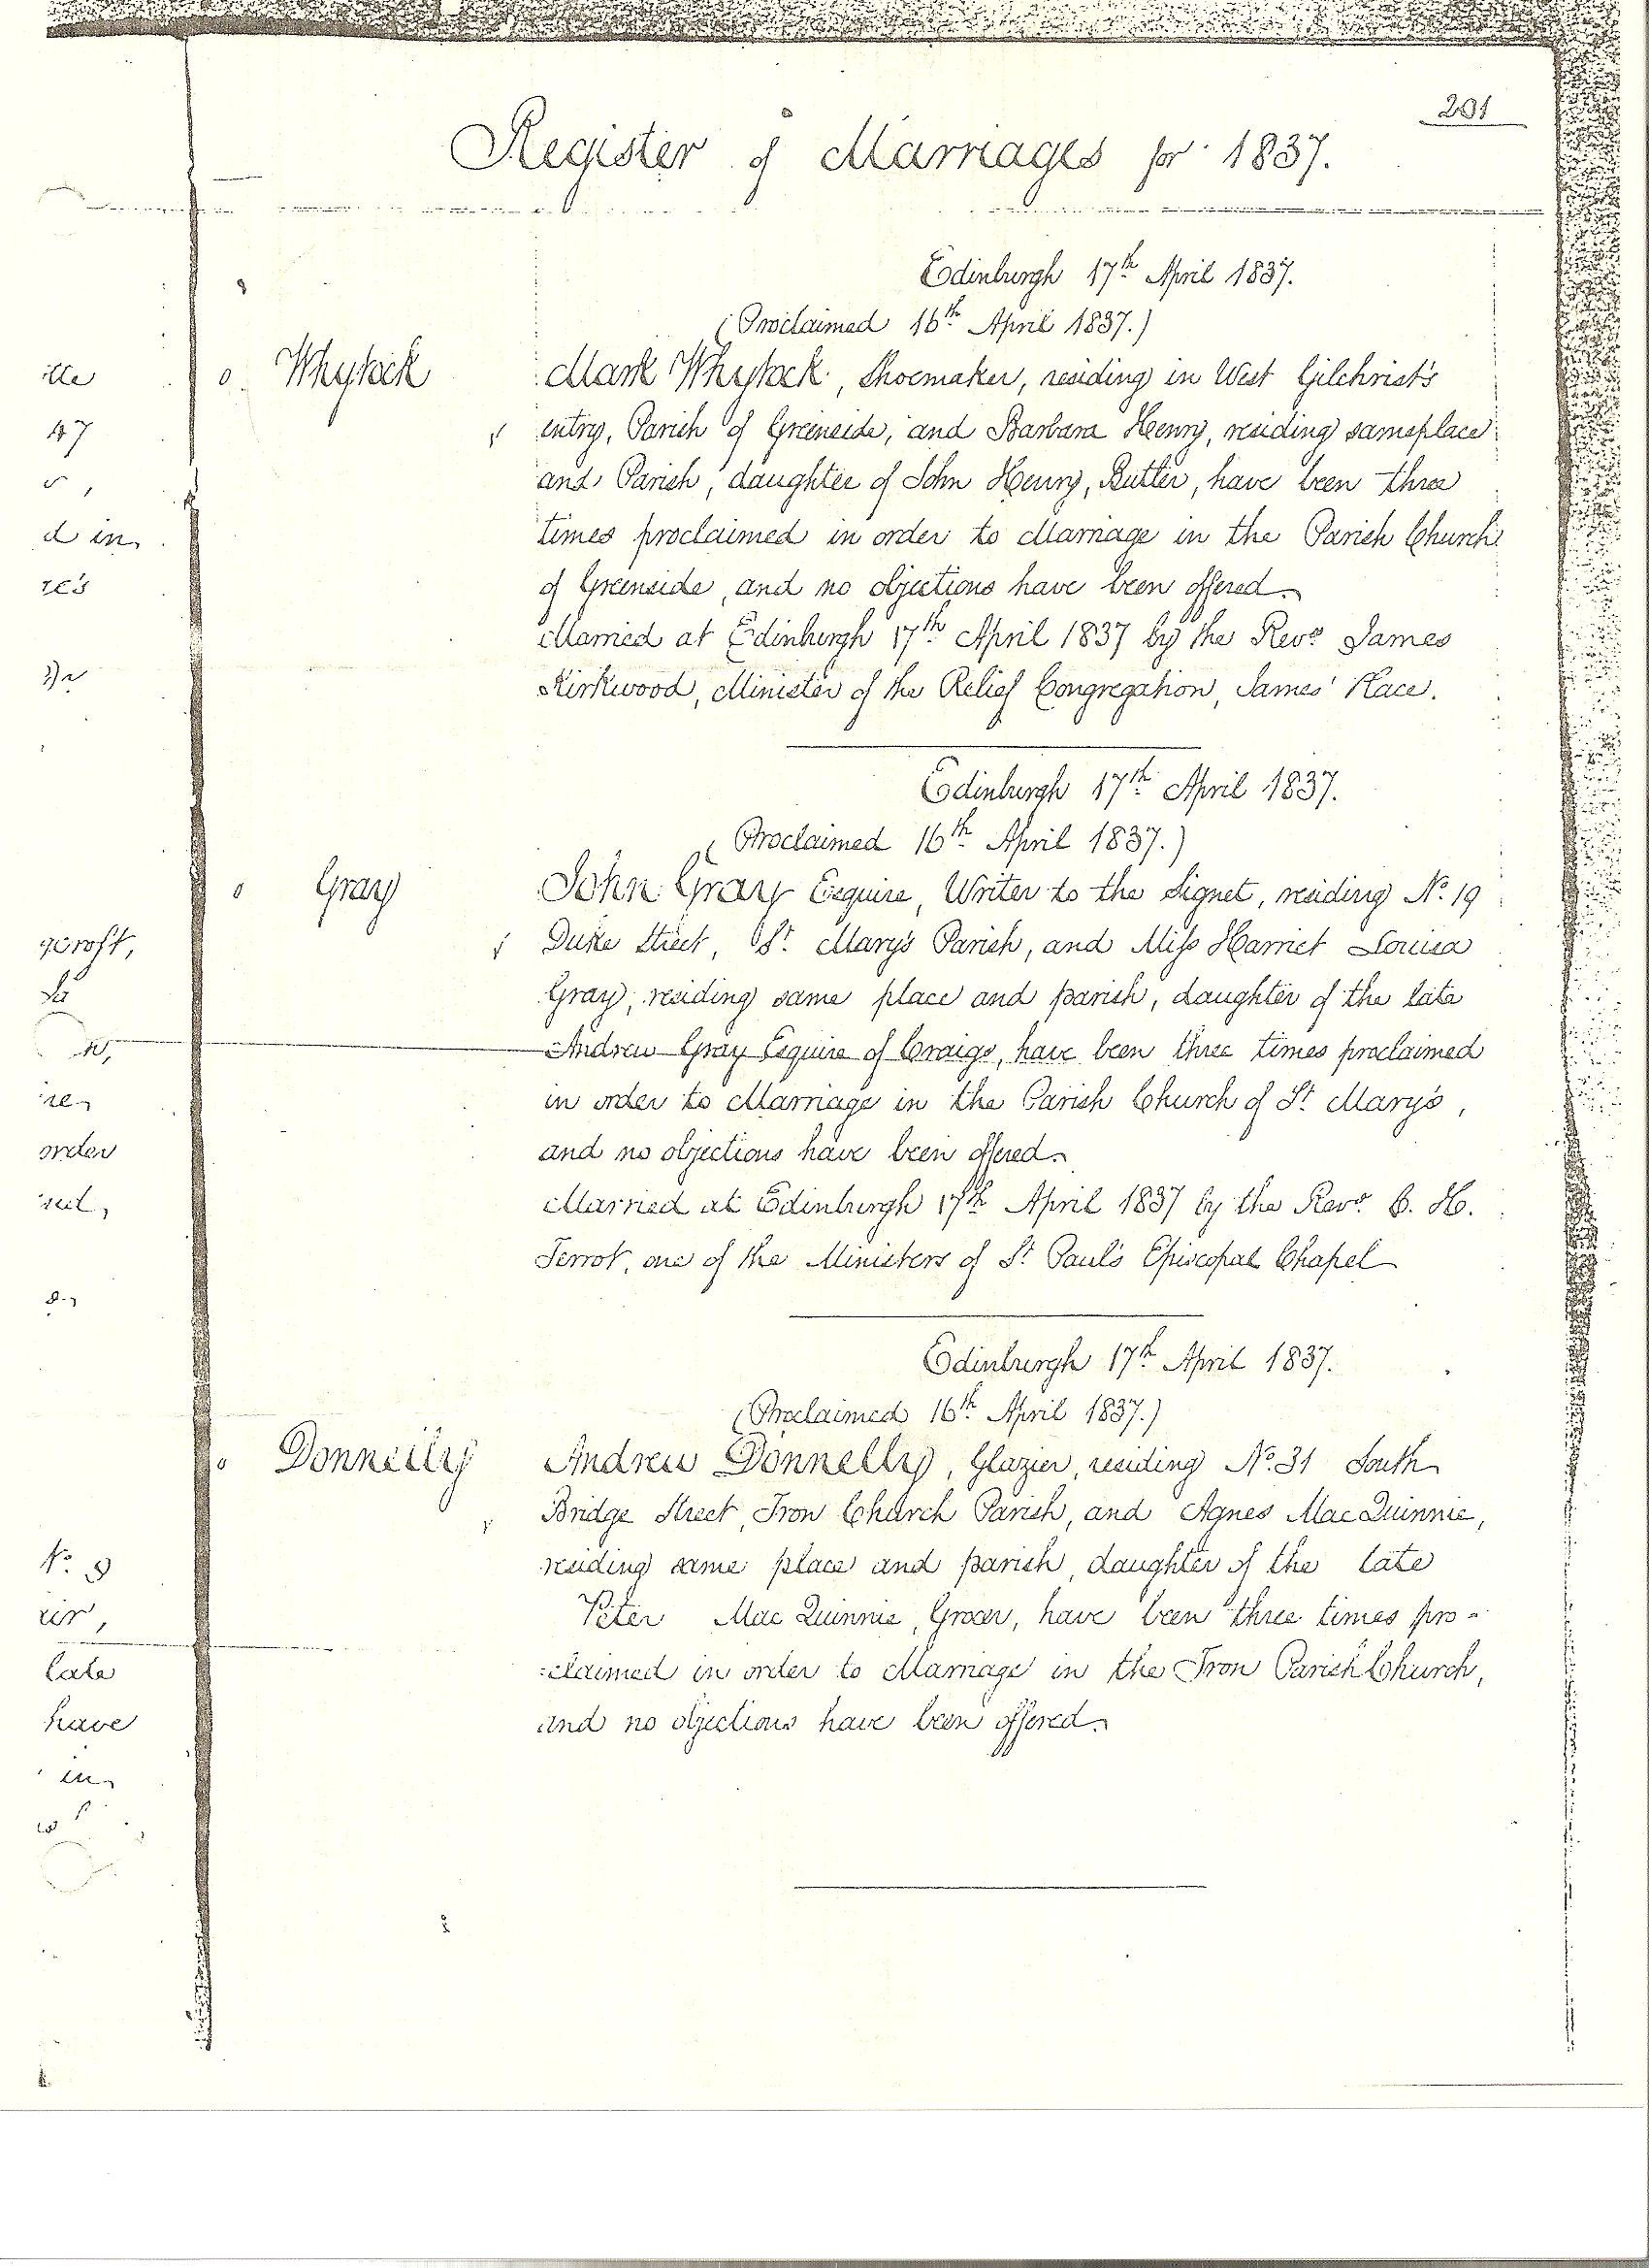 201
Register of Marriages for 1837.
Edinburgh 17th April 1837.
(Proclaimed 16th April 1837.)
Whytock
Mark Whytock, Shoemaker, residing in West Gilchrist's
entry, Parish of Greenside, and Barbara Henry, residing same place
and Parish, daughter of John Henry, Butler, have been three
times proclaimed in order to Marriage in the Parish Church
of Greenside, and no objections have been offered.
Married at Edinburgh 17th April 1837 by the Revd. James
Kirkwood, Minister of the Relief Congregation, James' Place.
Edinburgh 17th April 1837.
(Proclaimed 16th April 1837.)
Gray
John Gray Esquire, Writer to the Signet, residing No. 19
Duke Street, St. Mary's Parish, and Miss Harriet Louisa
Gray, residing same place and parish, daughter of the late
Andrew Gray Esquire of Craigs, have been three times proclaimed
in order to Marriage in the Parish Church of St. Mary's,
and no objections have been offered.
Married at Edinburgh 17th April 1837 by the Revd. C. H.
Terrot, one of the Ministers of St. Paul's Episcopal Chapel
Edinburgh 17th April 1837.
(Proclaimed 16th April 1837.)
Donnelly
Andrew Donnelly, Glazier, residing No. 31 South
Bridge Street, Tron Church Parish, and Agnes MacQuinnie,
residing same place and parish, daughter of the late
Peter MacQuinnie, Grocer, have been three times pro-
:claimed in order to Marriage in the Tron Parish Church,
and no objections have been offered.
47
d in
order
No. 9
late
have
in